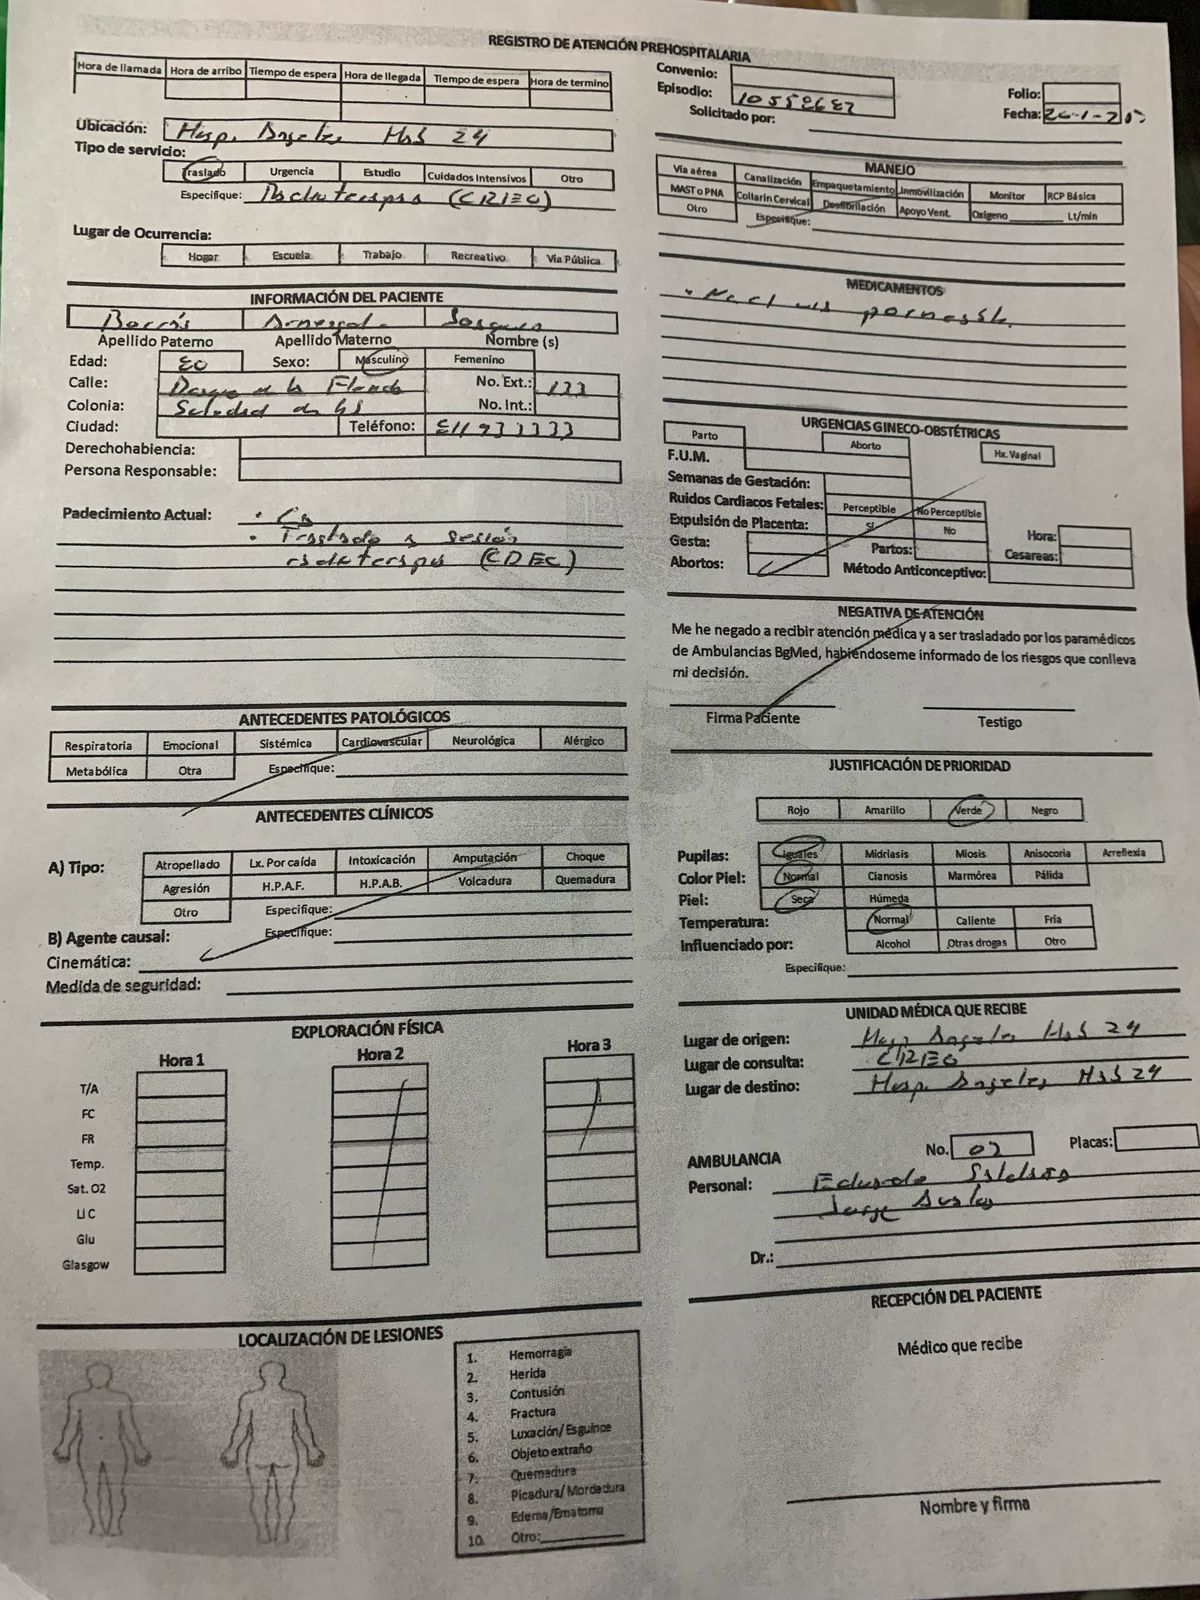 REGISTRO DE ATENCIÓN PREHOSPITALARIA
Hora de llamada Hora de arribo Tiempo de espera Hora de llegada Tiempo de espera Hora de termino
Convenio:
Episodio:
Solicitado por:
Folio:
Fecha:
Ubicación: Hosp. Angeles 24
Tipo de servicio:
Traslado Urgencia Estudio Cuidados Intensivos Otro
Especifique: (CRIEO)
Lugar de Ocurrencia:
Hogar Escuela Trabajo Recreativo Vía Pública
INFORMACIÓN DEL PACIENTE
Apellido Paterno Apellido Materno Nombre (s)
Edad: Sexo: Masculino Femenino
Calle: No. Ext.: 133
Colonia: No. Int.:
Ciudad: Teléfono:
Derechohabiencia:
Persona Responsable:
Padecimiento Actual: • Ca
• Traslado a sesión
radioterapia
ANTECEDENTES PATOLÓGICOS
Respiratoria Emocional Sistémica Cardiovascular Neurológica Alérgico
Metabólica Otra Especifique:
ANTECEDENTES CLÍNICOS
A) Tipo: Atropellado Lx. Por caída Intoxicación Amputación Choque
Agresión H.P.A.F. H.P.A.B. Volcadura Quemadura
Otro Especifique:
B) Agente causal: Especifique:
Cinemática:
Medida de seguridad:
EXPLORACIÓN FÍSICA
Hora 1 Hora 2 Hora 3
T/A
FC
FR
Temp.
Sat. O2
LIC
Glu
Glasgow
LOCALIZACIÓN DE LESIONES
1. Hemorragia
2. Herida
3. Contusión
4. Fractura
5. Luxación/ Esguince
6. Objeto extraño
7. Quemadura
8. Picadura/ Mordedura
9. Edema/Ematoma
10. Otro:
MANEJO
Vía aérea Canalización Empaquetamiento Inmovilización Monitor RCP Básica
MAST o PNA Collarín Cervical Desfibrilación Apoyo Vent. Oxígeno Lt/min
Otro Especifique:
MEDICAMENTOS
URGENCIAS GINECO-OBSTÉTRICAS
Parto Aborto Hx. Vaginal
F.U.M.
Semanas de Gestación:
Ruidos Cardiacos Fetales: Perceptible No Perceptible
Expulsión de Placenta: Sí No Hora:
Gesta: Partos: Cesareas:
Abortos: Método Anticonceptivo:
NEGATIVA DE ATENCIÓN
Me he negado a recibir atención médica y a ser trasladado por los paramédicos
de Ambulancias BgMed, habiéndoseme informado de los riesgos que conlleva
mi decisión.
Firma Paciente Testigo
JUSTIFICACIÓN DE PRIORIDAD
Rojo Amarillo Verde Negro
Pupilas: Iguales Midriasis Miosis Anisocoria Arreflexia
Color Piel: Normal Cianosis Marmórea Pálida
Piel: Seca Húmeda
Temperatura: Normal Caliente Fría
Influenciado por: Alcohol Otras drogas Otro
Especifique:
UNIDAD MÉDICA QUE RECIBE
Lugar de origen: Hosp Angeles 24
Lugar de consulta: CRIEO
Lugar de destino: Hosp. Angeles 24
AMBULANCIA No. 02 Placas:
Personal: Eduardo
Jorge
Dr.:
RECEPCIÓN DEL PACIENTE
Médico que recibe
Nombre y firma